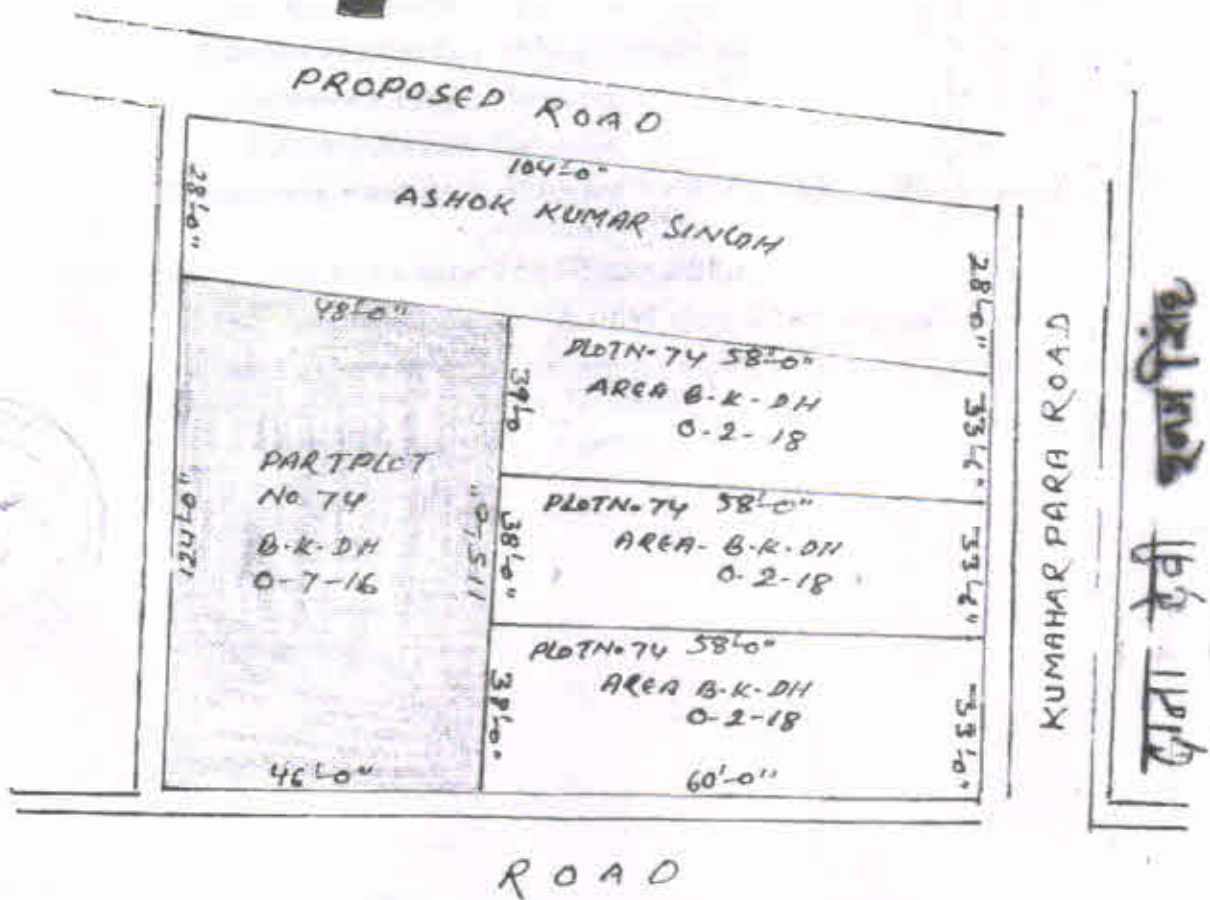 PROPOSED ROAD
104'-0"
ASHOK KUMAR SINGH
28'-0"
28'-0"
48'-0"
PLOT N. 74 58'-0"
AREA B-K-DH
0-2-18
39'-0
33'-6"
PART PLOT
NO 74
B-K-DH
0-7-16
124'-0"
115'-0"
PLOT N. 74 58'-0"
AREA- B-K-DH
0-2-18
38'-0"
33'-6"
PLOT N. 74 58'-0"
AREA B-K-DH
0-2-18
38'-0"
33'-0"
46'-0"
60'-0"
KUMAHAR PARA ROAD
ROAD
देवी